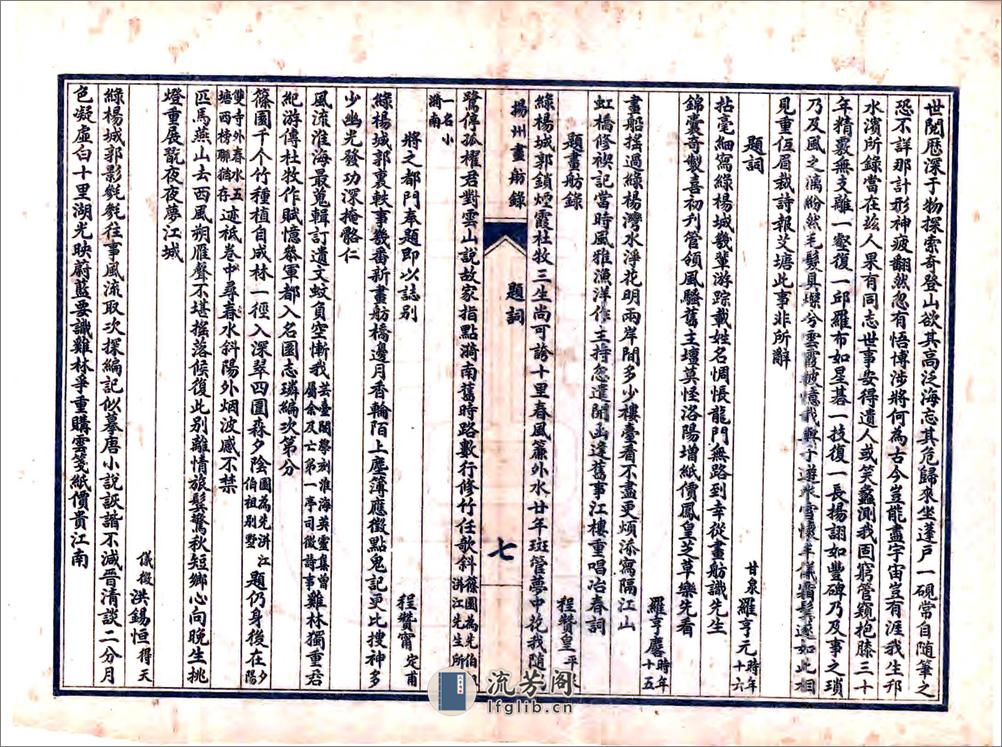 世閱歷深于物探索奇登山欲其高泛海忘其危歸來坐蓬戶一硯常自隨筆之
恐不詳那計形神疲翻然忽有悟博涉將何為古今豈能盡宇宙豈有涯我生邗
水濱所錄當在茲人果有同志世事安得遺人或笑蠡測我固窮管窺抱膝三十
年精靈無支離一壑復一邱羅布如星碁一技復一長揚詡如豐碑乃及事之瑣
乃及風之漓紛然毛髮具爛兮雲霞披憶我與子遊冰雪懷羊儀霜髯遂如此相
見重伍眉裁詩報艾塘此事非所辭
題詞
甘泉 羅亨元 時年十六
拈毫細寫綠楊城幾輩游踪載姓名惆悵龍門無路到幸從畫舫識先生
錦囊奇製喜初刋管領風騷舊主壇莫怪洛陽增紙價鳳皇芝草樂先看
羅亨麐 時年十五
畫船搖過綠楊灣水淨花明兩岸閒多少樓臺看不盡更煩添寫隔江山
虹橋修禊記當時風雅漁洋作主持忽遣開函逢舊事江樓重唱冶春詞
題畫舫錄
程贊皇 平
綠楊城郭鎖煙霞杜牧三生尚可誇十里春風簾外水廿年斑管夢中花我隨
揚州畫舫錄 題詞 七
鷺停孤櫂君對雲山說故家指點漪南舊時路數行修竹任欹斜 篠園為先伯 洴江先生所
一名小漪南
將之都門奉題即以誌別
程贊甯 定甫
綠楊城郭裏軼事幾番新畫舫橋邊月香輪陌上塵薄應徵點鬼記更比搜神多
少幽光發功深掩骼仁
風流淮海最蒐輯訂遺文蚊負空慚我 芸臺閣學刻淮海英靈集曾屬余及亡弟一亭司徵詩事 雞林獨重君
紀游傳杜牧作賦憶參軍都入名園志璘編次第分
篠園千个竹種植自成林一徑入深翠四圍森夕陰 園為先洴江伯祖別墅 題仍身後在 夕陽
雙寺外春水五塘西榜聯猶存 迹祗卷中尋春水斜陽外烟波感不禁
匹馬燕山去西風朔雁聲不堪搖落候復此別離情旅鬢驚秋短鄉心向晚生挑
燈重展翫夜夜夢江城
儀徵 洪錫恒 得天
綠楊城郭影毿毿往事風流取次探編記似摹唐小說詼諧不減晉清談二分月
色凝虛白十里湖光映蔚藍要識雞林爭重購雲箋紙價貴江南
流芳閣
lfglib.cn